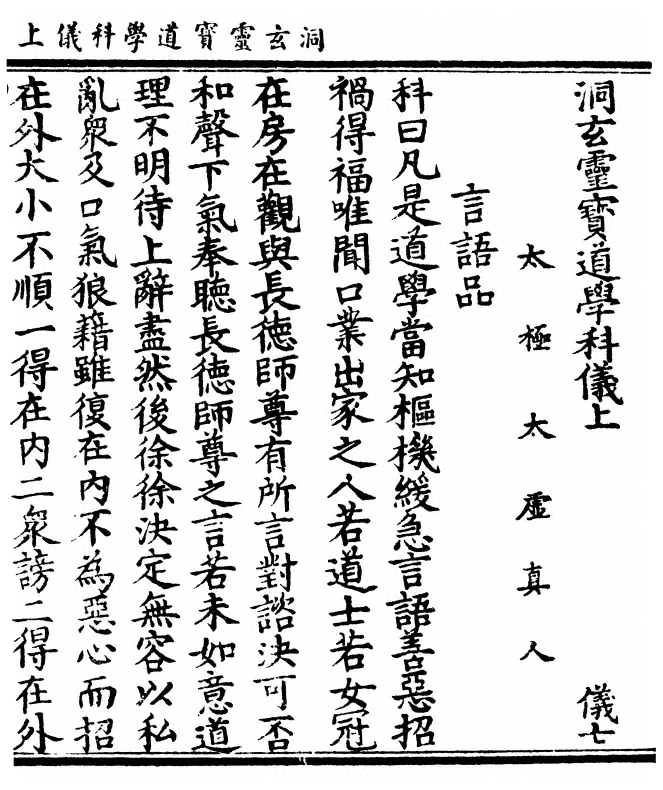 洞玄靈寶道學科儀上
洞玄靈寶道學科儀上 儀七
太極太虛真人
言語品
科曰凡是道學當知樞機緩急言語善惡招
禍得福唯聞口業出家之人若道士若女冠
在房在觀與長德師尊有所言對談決可否
和聲下氣奉聽長德師尊之言若未如意道
理不明待上辭盡然後徐徐決定無容以私
亂衆及口氣狼藉雖復在内不為惡心而招
在外大小不順一得在内二衆謗二得在外